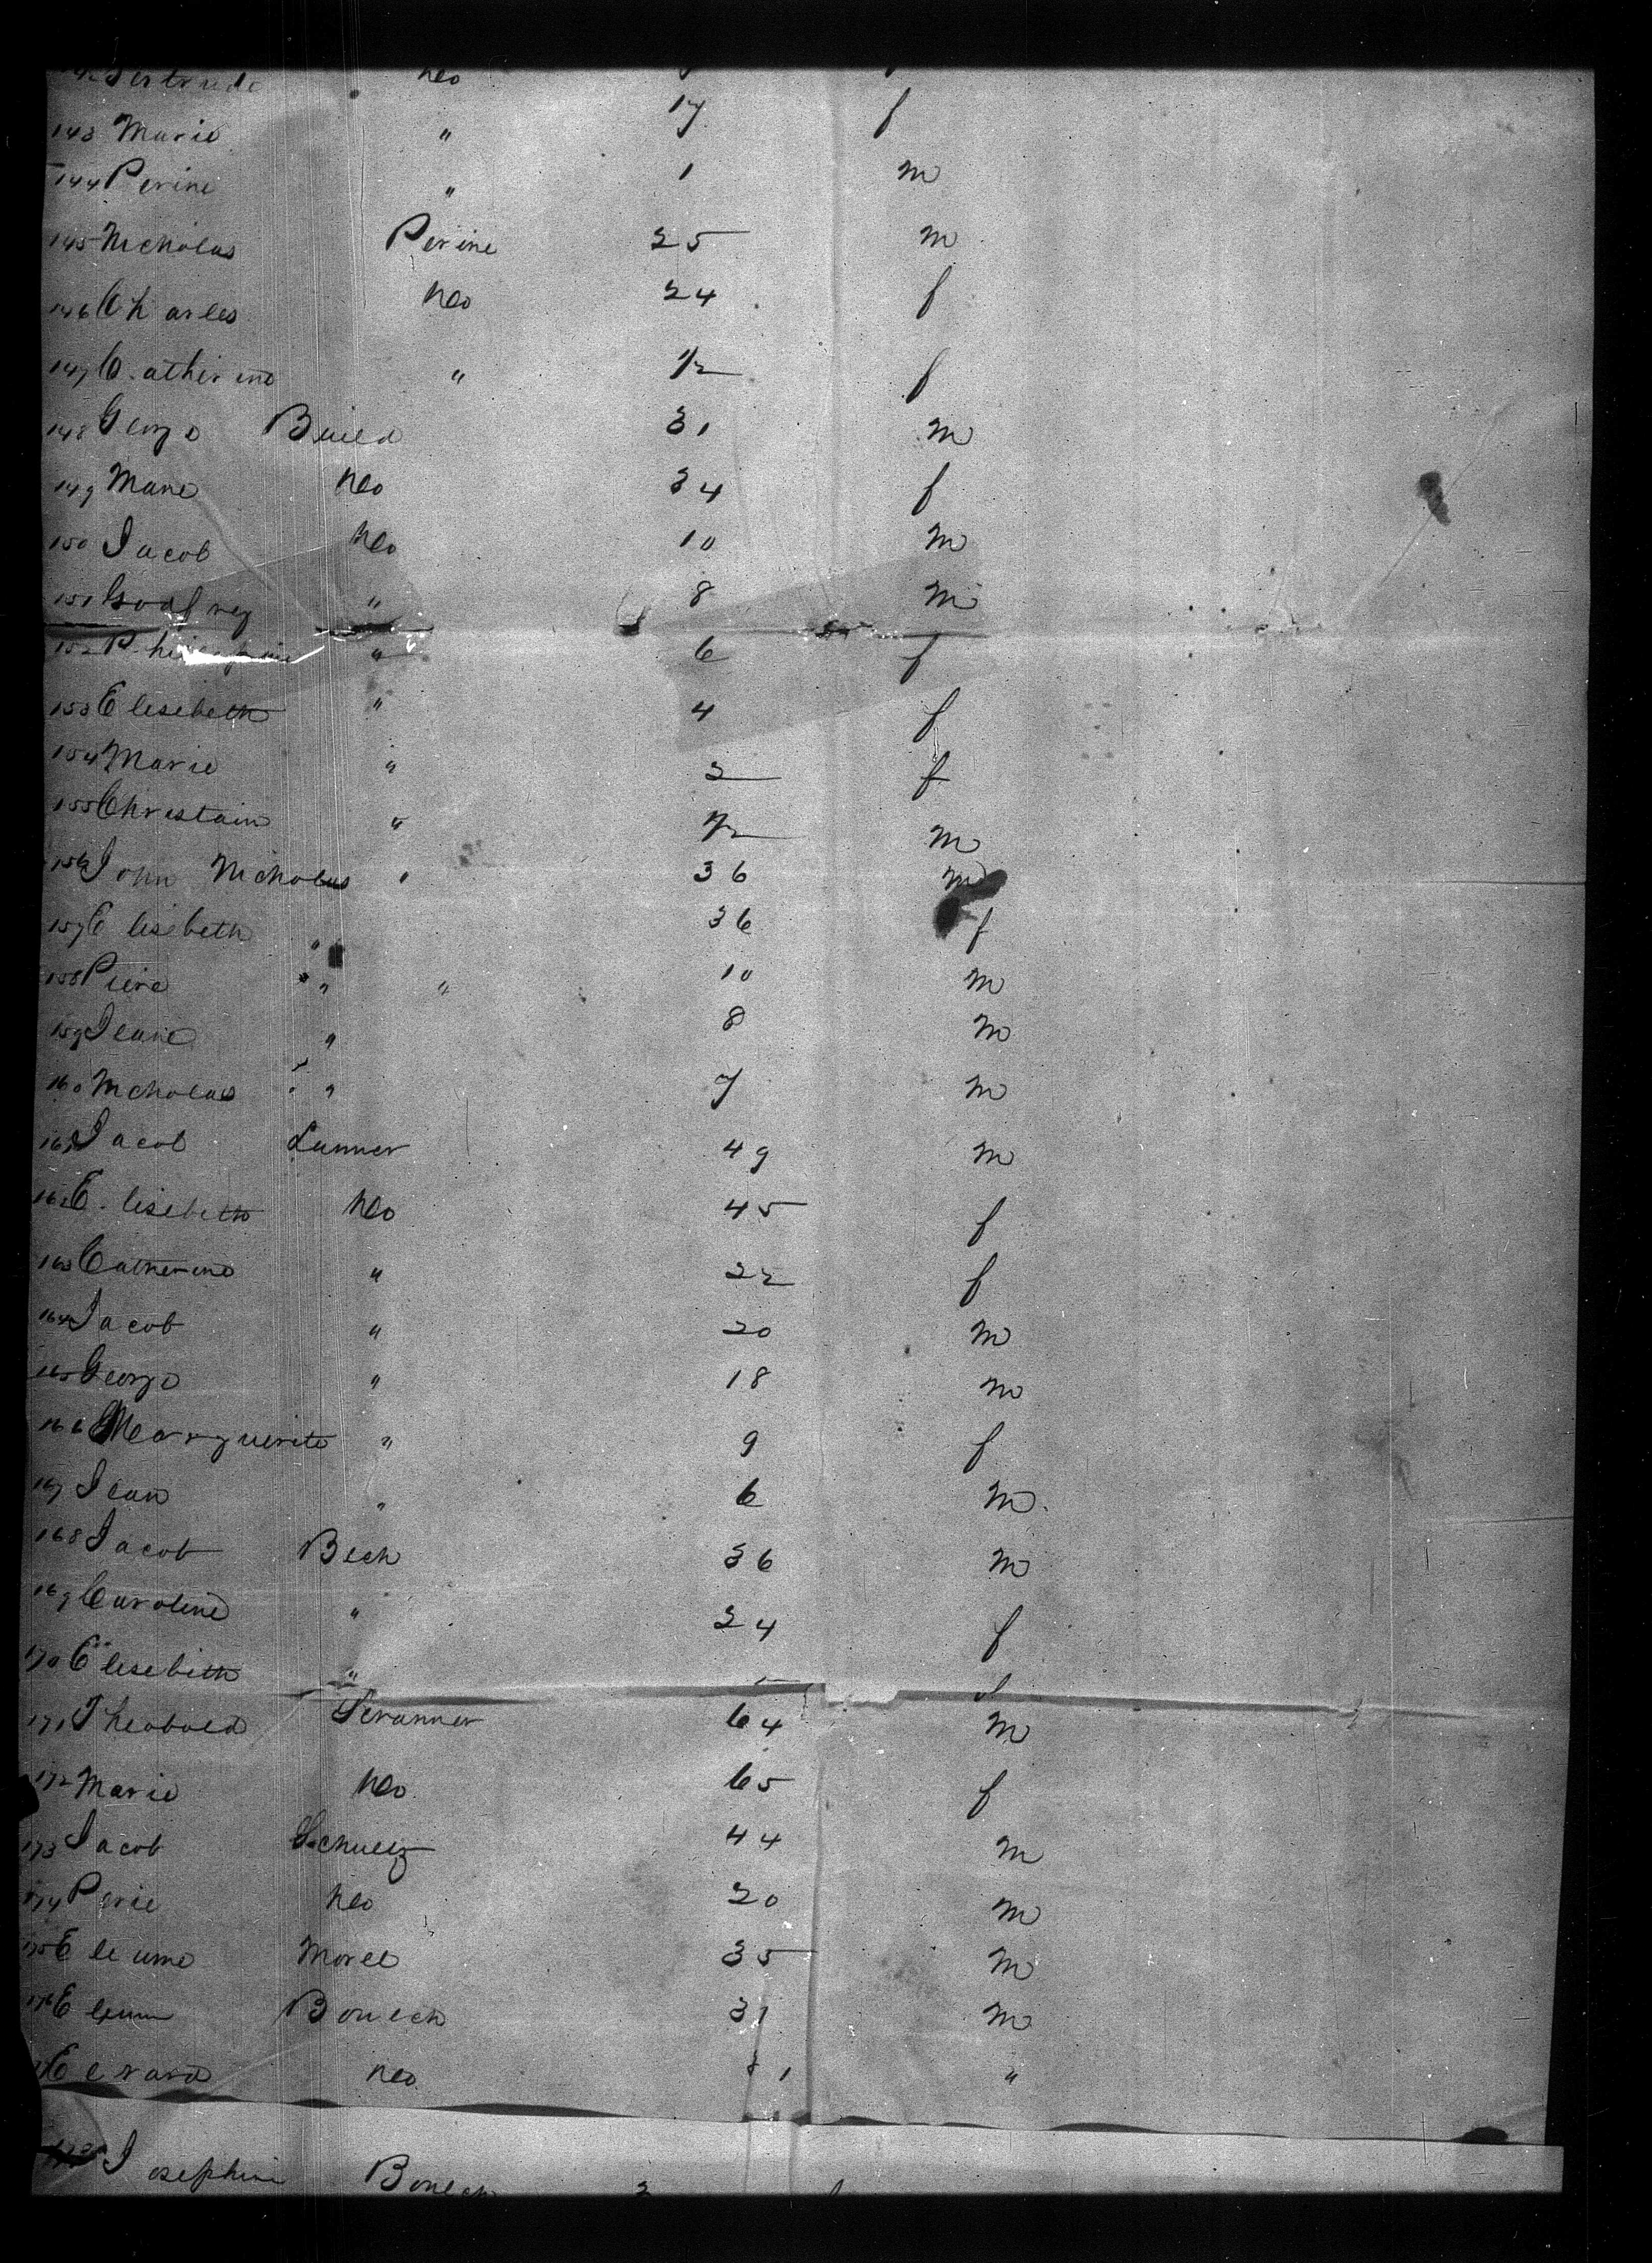 Gertrude do
143 Marie " 17 f
144 Perine " 1 m
145 Nicholas Perine 25 m
146 Charles do 24 f
147 Catherine " 1/2 f
148 George 31 m
149 Marie do 34 f
150 Jacob do 10 m
151 Godfrey " 8 m
152 " 6 f
153 Elisebeth " 4 f
154 Marie " 2 f
155 Chrestain " 1/2 m
156 John Nicholas " 36 m
157 Elisebeth " 36 f
158 Piere " " 10 m
159 Jeane " 8 m
160 Nicholas " 7 m
161 Jacob Lanner 49 m
162 Elisebeth do 45 f
163 Catherine " 22 f
164 Jacob " 20 m
165 George " 18 m
166 Marguerite " 9 f
167 Jean " 6 m
168 Jacob Bech 36 m
169 Caroline " 24 f
170 Elisebeth "
171 Theobald 64 m
172 Marie do 65 f
173 Jacob Schultz 44 m
174 Perie do 20 m
175 Morel 35 m
176 Bonech 31 m
do 1 "
Josephine Bonech